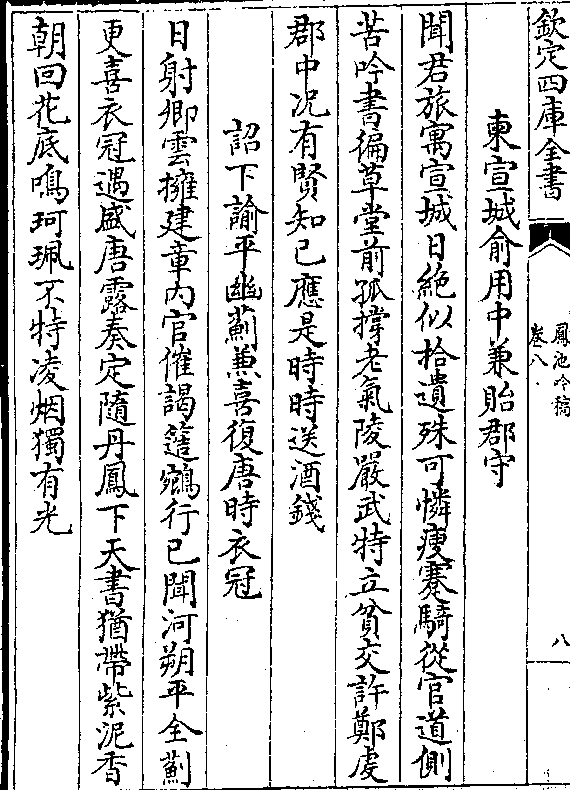 欽定四庫全書
鳳池吟稿
卷八
八
柬宣城俞用中兼貽郡守
聞君旅寓宣城日絶似拾遺殊可憐瘦蹇騎從官道側
苦吟書徧草堂前孤撐老氣陵嚴武特立貧交許鄭虔
郡中况有賢知己應是時時送酒錢
詔下諭平幽薊兼喜復唐時衣冠
日射卿雲擁建章内官催謁簉鵷行已聞河朔平全薊
更喜衣冠遇盛唐露奏定隨丹鳳下天書猶帶紫泥香
朝回花底鳴珂珮不特凌烟獨有光